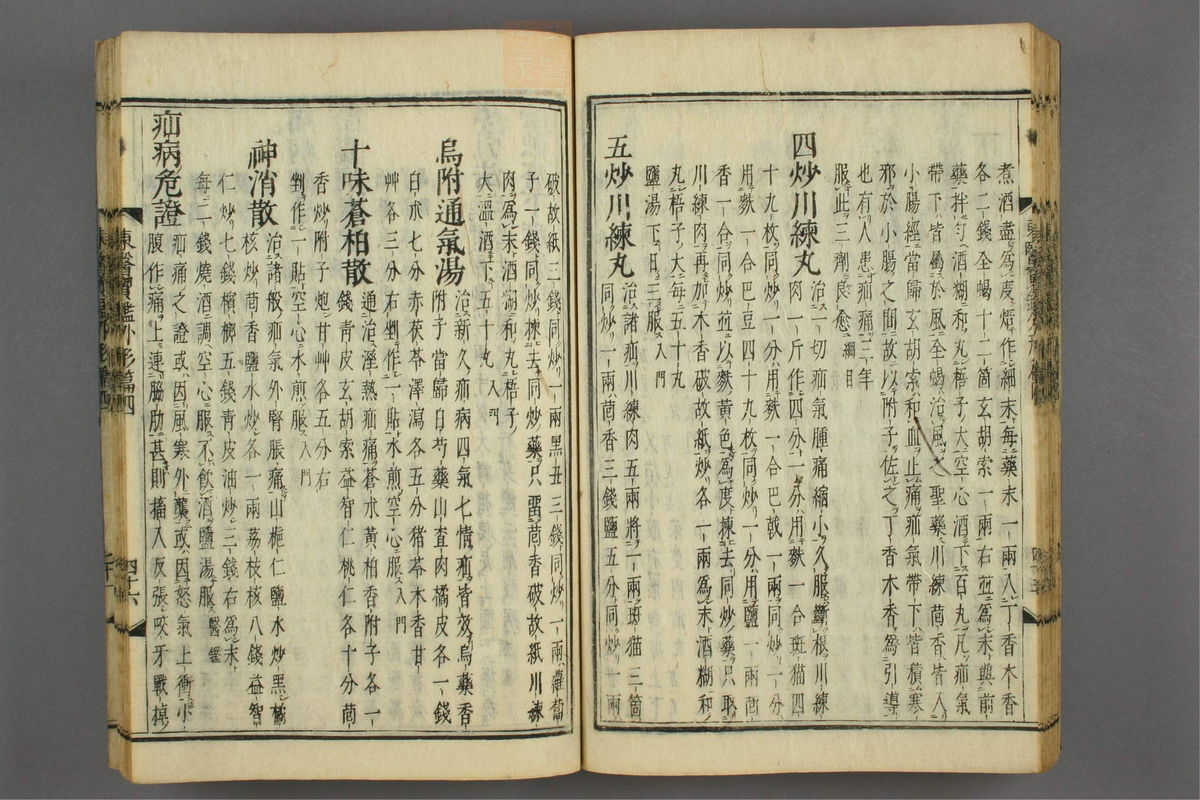 煮酒盡爲度焙作細末每藥末一兩入丁香木香
各二錢全蝎十二箇玄胡索一兩右並爲末與前
藥拌勻酒糊和丸梧子大空心酒下百丸凡疝氣
帶下皆屬於風全蝎治風之聖藥川練茴香皆入
小腸經當歸玄胡索和血止痛疝氣帶下皆積寒
邪於小腸之間故以附子佐之丁香木香爲引導
也有人患疝痛三年
服此三劑良愈 綱目
四炒川練丸 治一切疝氣腫痛縮小久服斷根川練
肉一斤作四分一分用麩一合斑猫四
十九枚同炒一分用麩一合巴戟一兩同炒一分
用麩一合巴豆四十九枚同炒一分用鹽一兩茴
香一合同炒並以麩黃色爲度揀去同炒藥只取
川練肉再加木香破故紙炒各一兩爲末酒糊和
丸梧子大每五十丸
鹽湯下日三服 入門
五炒川練丸 治諸疝川練肉五兩將一兩斑猫三箇
同炒一兩茴香三錢鹽五分同炒一兩
破故紙三錢同炒一兩黑丑三錢同炒一兩蘿葍
子一錢同炒揀去同炒藥只留茴香破故紙川練
肉爲末酒糊和丸梧子
大溫酒下五十丸 入門
烏附通氣湯 治新久疝病四氣七情疝皆效烏藥香
附子當歸白芍藥山査肉橘皮各一錢
白朮七分赤茯苓澤瀉各五分猪苓木香甘
艸各三分右剉作一貼水煎空心服 入門
十味蒼柏散 通治溼熱疝痛蒼朮黃柏香附子各一
錢靑皮玄胡索益智仁桃仁各十分茴
香炒附子炮甘艸各五分右
剉作一貼空心水煎服 入門
神消散 治諸般疝氣外腎脹痛山梔仁鹽水炒黑橘
核炒茴香鹽水炒各一兩荔枝核八錢益智
仁炒七錢檳榔五錢靑皮油炒三錢右爲末
每二錢燒酒調空心服不飮酒鹽湯服 醫鑑
疝病危證 疝痛之證或因風寒外襲或因怒氣上衝小
腹作痛上連脇肋甚則搐入反張咬牙戰掉
東醫寶鑑外形篇四
四十六